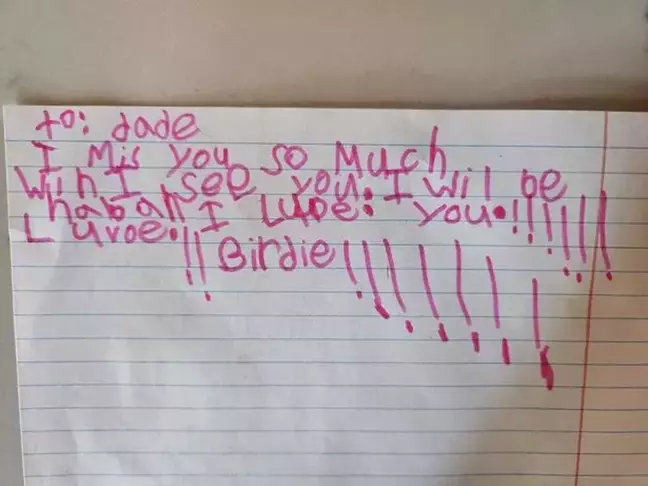 to: dade
I Mis you so Much
Win I see you. I wil be
habah I Luve. you.!!!!!!
Luvoe.!!
Birdie!!!!!!!